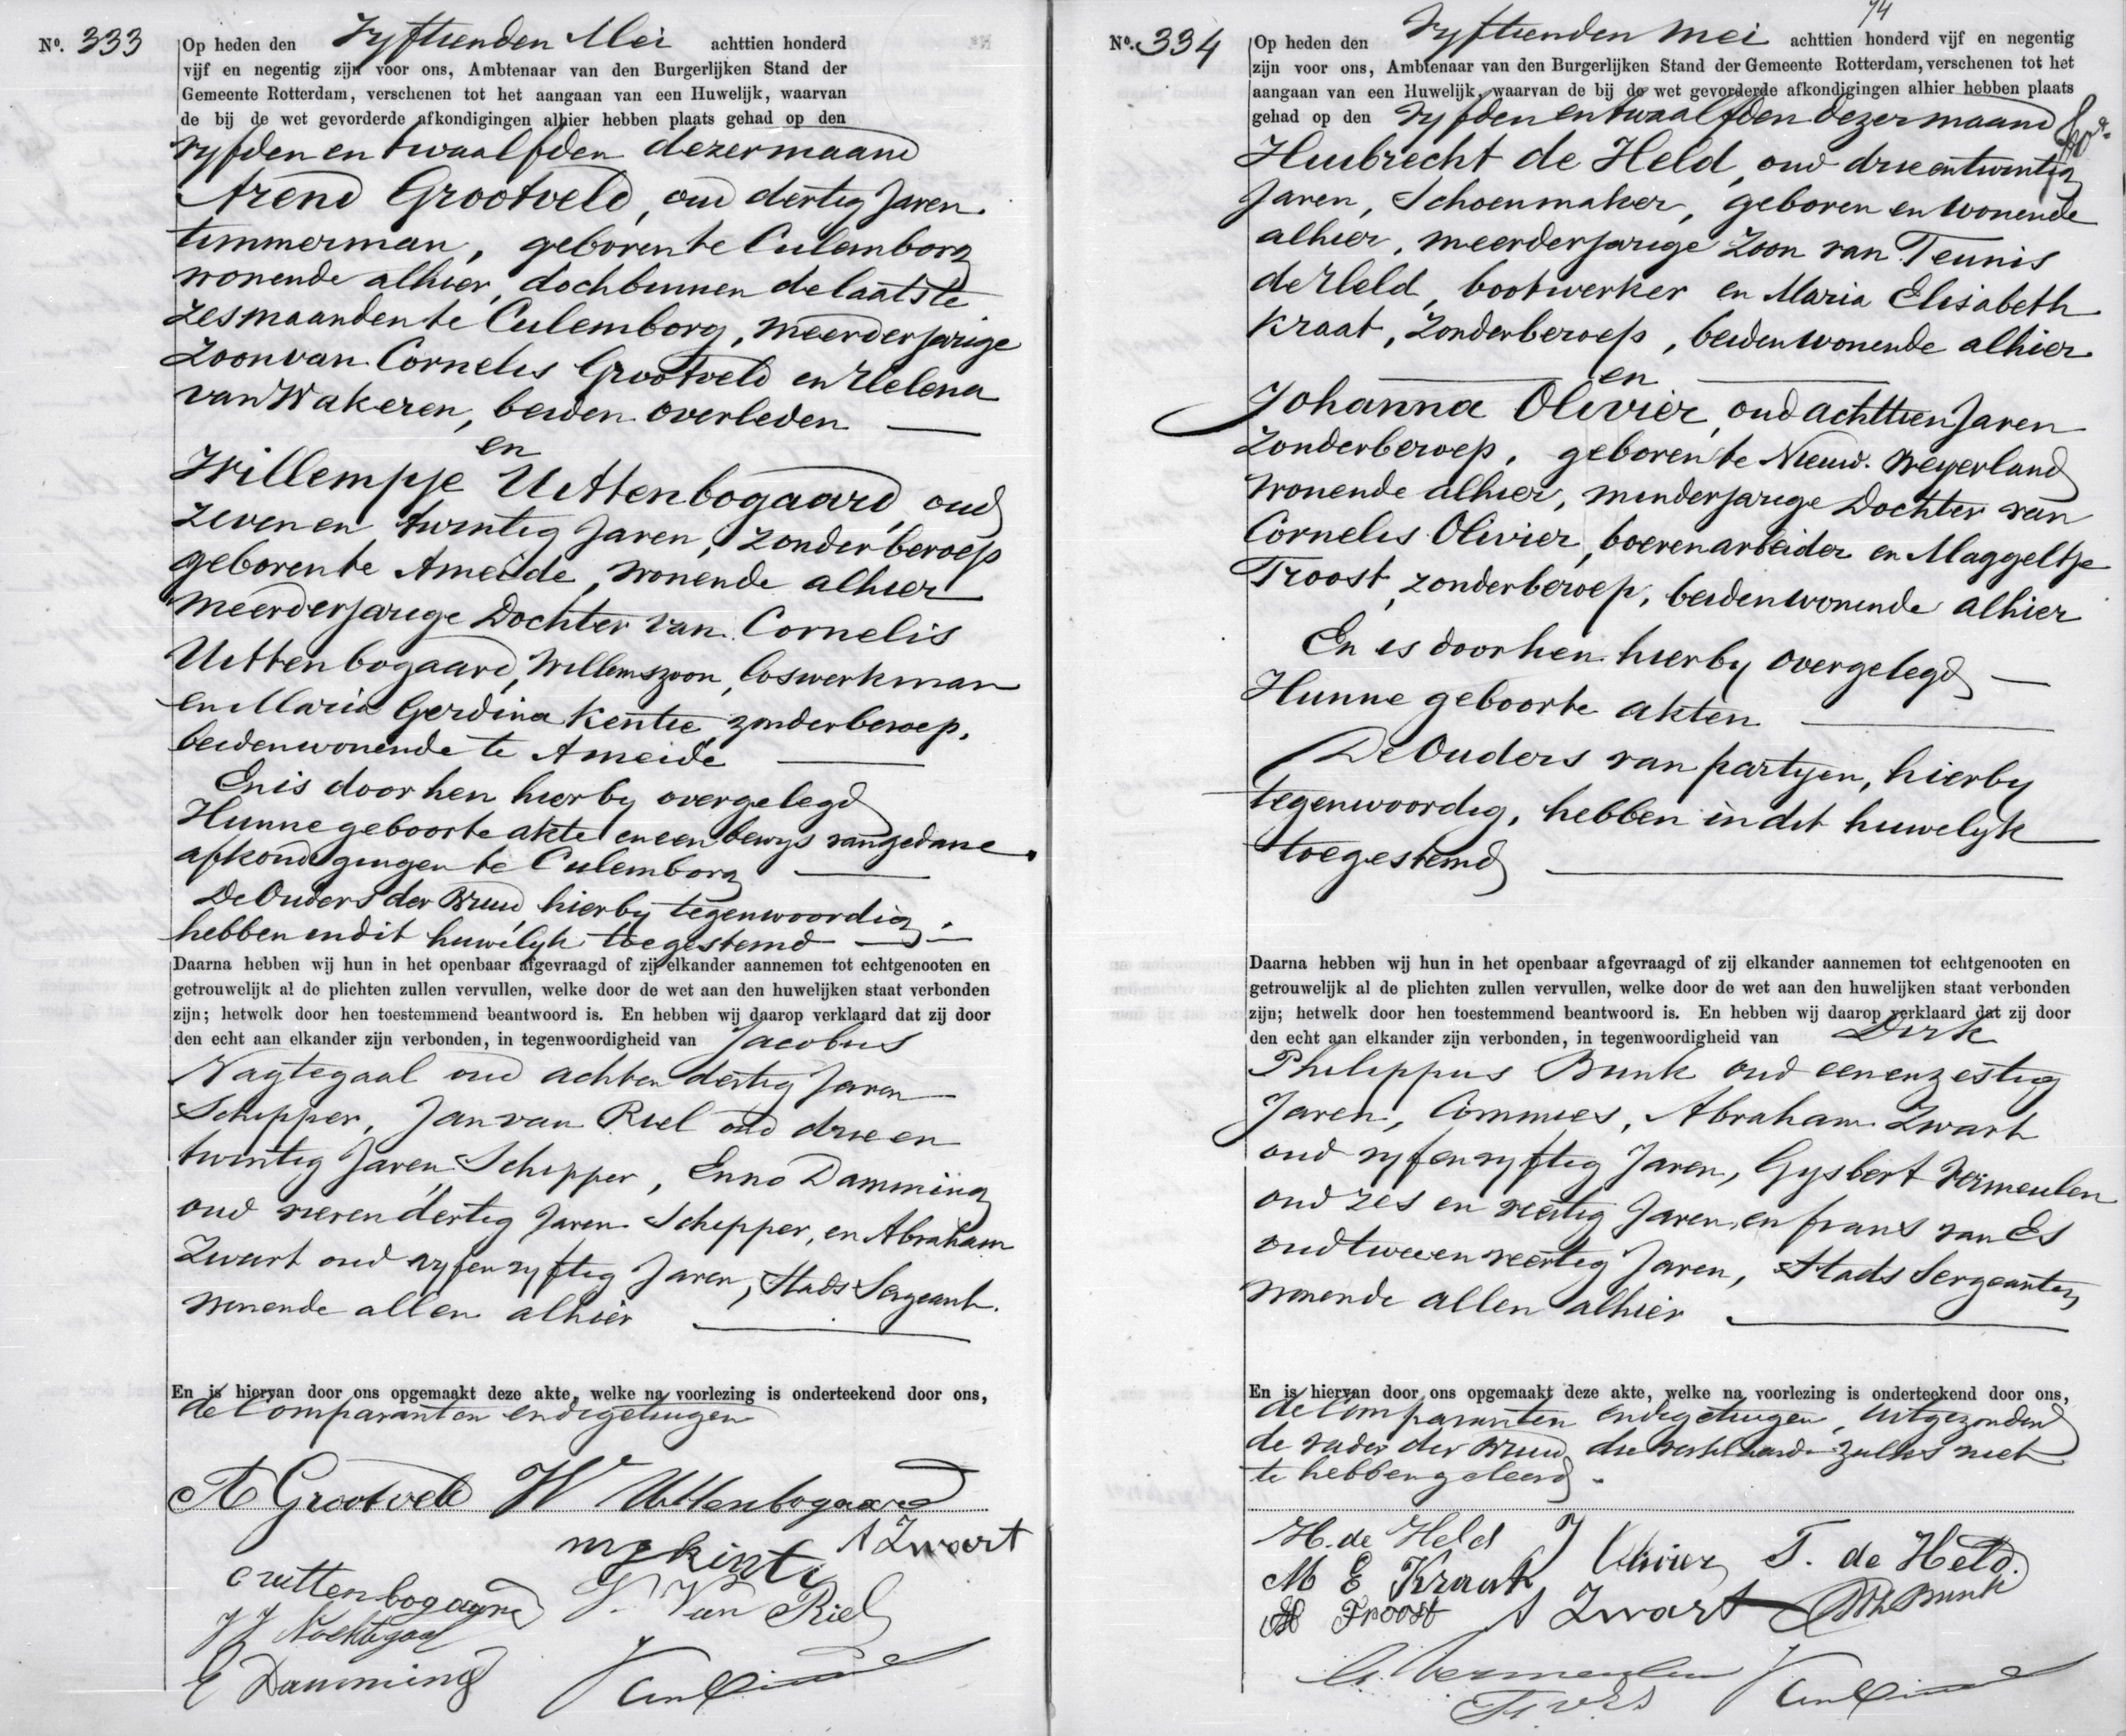 No. 333
Op heden den Vyftienden Mei achttien honderd
vijf en negentig zijn voor ons, Ambtenaar van den Burgerlijken Stand der
Gemeente Rotterdam, verschenen tot het aangaan van een Huwelijk, waarvan
de bij de wet gevorderde afkondigingen alhier hebben plaats gehad op den
vyfden en twaalfden dezer maand
Arend Grootveld, oud dertig Jaren
timmerman, geboren te Culemborg
wonende alhier, doch binnen de laatste
zes maanden te Culemborg, meerderjarige
Zoon van Cornelis Grootveld en Helena
van Wakeren, beiden overleden
en
Willempje Uittenbogaard, oud
zeven en twintig Jaren, zonder beroep
geboren te Ameide, wonende alhier
meerderjarige Dochter van Cornelis
Uittenbogaard, Willemszoon, loswerkman
en Maria Gerdina Kentie, zonder beroep,
beiden wonende te Ameide
En is door hen hierby overgelegd
Hunne geboorte akte en een bewys van gedane
afkondigingen te Culemborg
De Ouders der Bruid, hierby tegenwoordig,
hebben in dit huwelyk toegestemd
Daarna hebben wij hun in het openbaar afgevraagd of zij elkander aannemen tot echtgenooten en
getrouwelijk al de plichten zullen vervullen, welke door de wet aan den huwelijken staat verbonden
zijn; hetwelk door hen toestemmend beantwoord is. En hebben wij daarop verklaard dat zij door
den echt aan elkander zijn verbonden, in tegenwoordigheid van Jacobus
Nagtegaal oud acht en dertig Jaren
Schipper, Jan van Riel oud drie en
twintig Jaren, Schipper, Enno Damming
oud vier en dertig Jaren Schipper, en Abraham
Zwart oud vyf en vyftig Jaren, Stads Sergeant.
wonende allen alhier
En is hiervan door ons opgemaakt deze akte, welke na voorlezing is onderteekend door ons,
de Comparanten en de getuigen
A Grootveld W Uittenbogaard
A Zwart
M G Kenti
C uittenbogaard
J. Van Riel
J J Nachtegaal
E Damming
No. 334
74
Op heden den Vyftienden Mei achttien honderd vijf en negentig
zijn voor ons, Ambtenaar van den Burgerlijken Stand der Gemeente Rotterdam, verschenen tot het
aangaan van een Huwelijk, waarvan de bij de wet gevorderde afkondigingen alhier hebben plaats
gehad op den vyfden en twaalfden dezer maand
Huibrecht de Held, oud drie en twintig
Jaren, Schoenmaker, geboren en wonende
alhier, meerderjarige Zoon van Teunis
de Held, bootwerker en Maria Elisabeth
Kraat, zonder beroep, beiden wonende alhier
en
Johanna Olivier, oud achttien Jaren
zonder beroep, geboren te Nieuw-Beyerland
wonende alhier, minderjarige Dochter van
Cornelis Olivier, boerenarbeider en Maggeltje
Troost, zonder beroep, beiden wonende alhier
En is door hen hierby overgelegd
Hunne geboorte akten
De Ouders van partyen, hierby
tegenwoordig, hebben in dit huwelyk
toegestemd
Daarna hebben wij hun in het openbaar afgevraagd of zij elkander aannemen tot echtgenooten en
getrouwelijk al de plichten zullen vervullen, welke door de wet aan den huwelijken staat verbonden
zijn; hetwelk door hen toestemmend beantwoord is. En hebben wij daarop verklaard dat zij door
den echt aan elkander zijn verbonden, in tegenwoordigheid van Dirk
Philippus Bunk oud een en zestig
Jaren, Commies, Abraham Zwart
oud vyf en vyftig Jaren, Gysbert Vermeulen
oud zes en veertig Jaren, en Frans van Es
oud twee en veertig Jaren, Stads Sergeanten
wonende allen alhier
En is hiervan door ons opgemaakt deze akte, welke na voorlezing is onderteekend door ons,
de Comparanten en de getuigen, uitgezonderd
de vader der Bruid, die verklaarde zulks niet
te hebben geleerd.
H. de Held J Olivier T. de Held.
M E Kraat
M Troost A Zwart DPh Bunk
G. Vermeulen
F. v Es